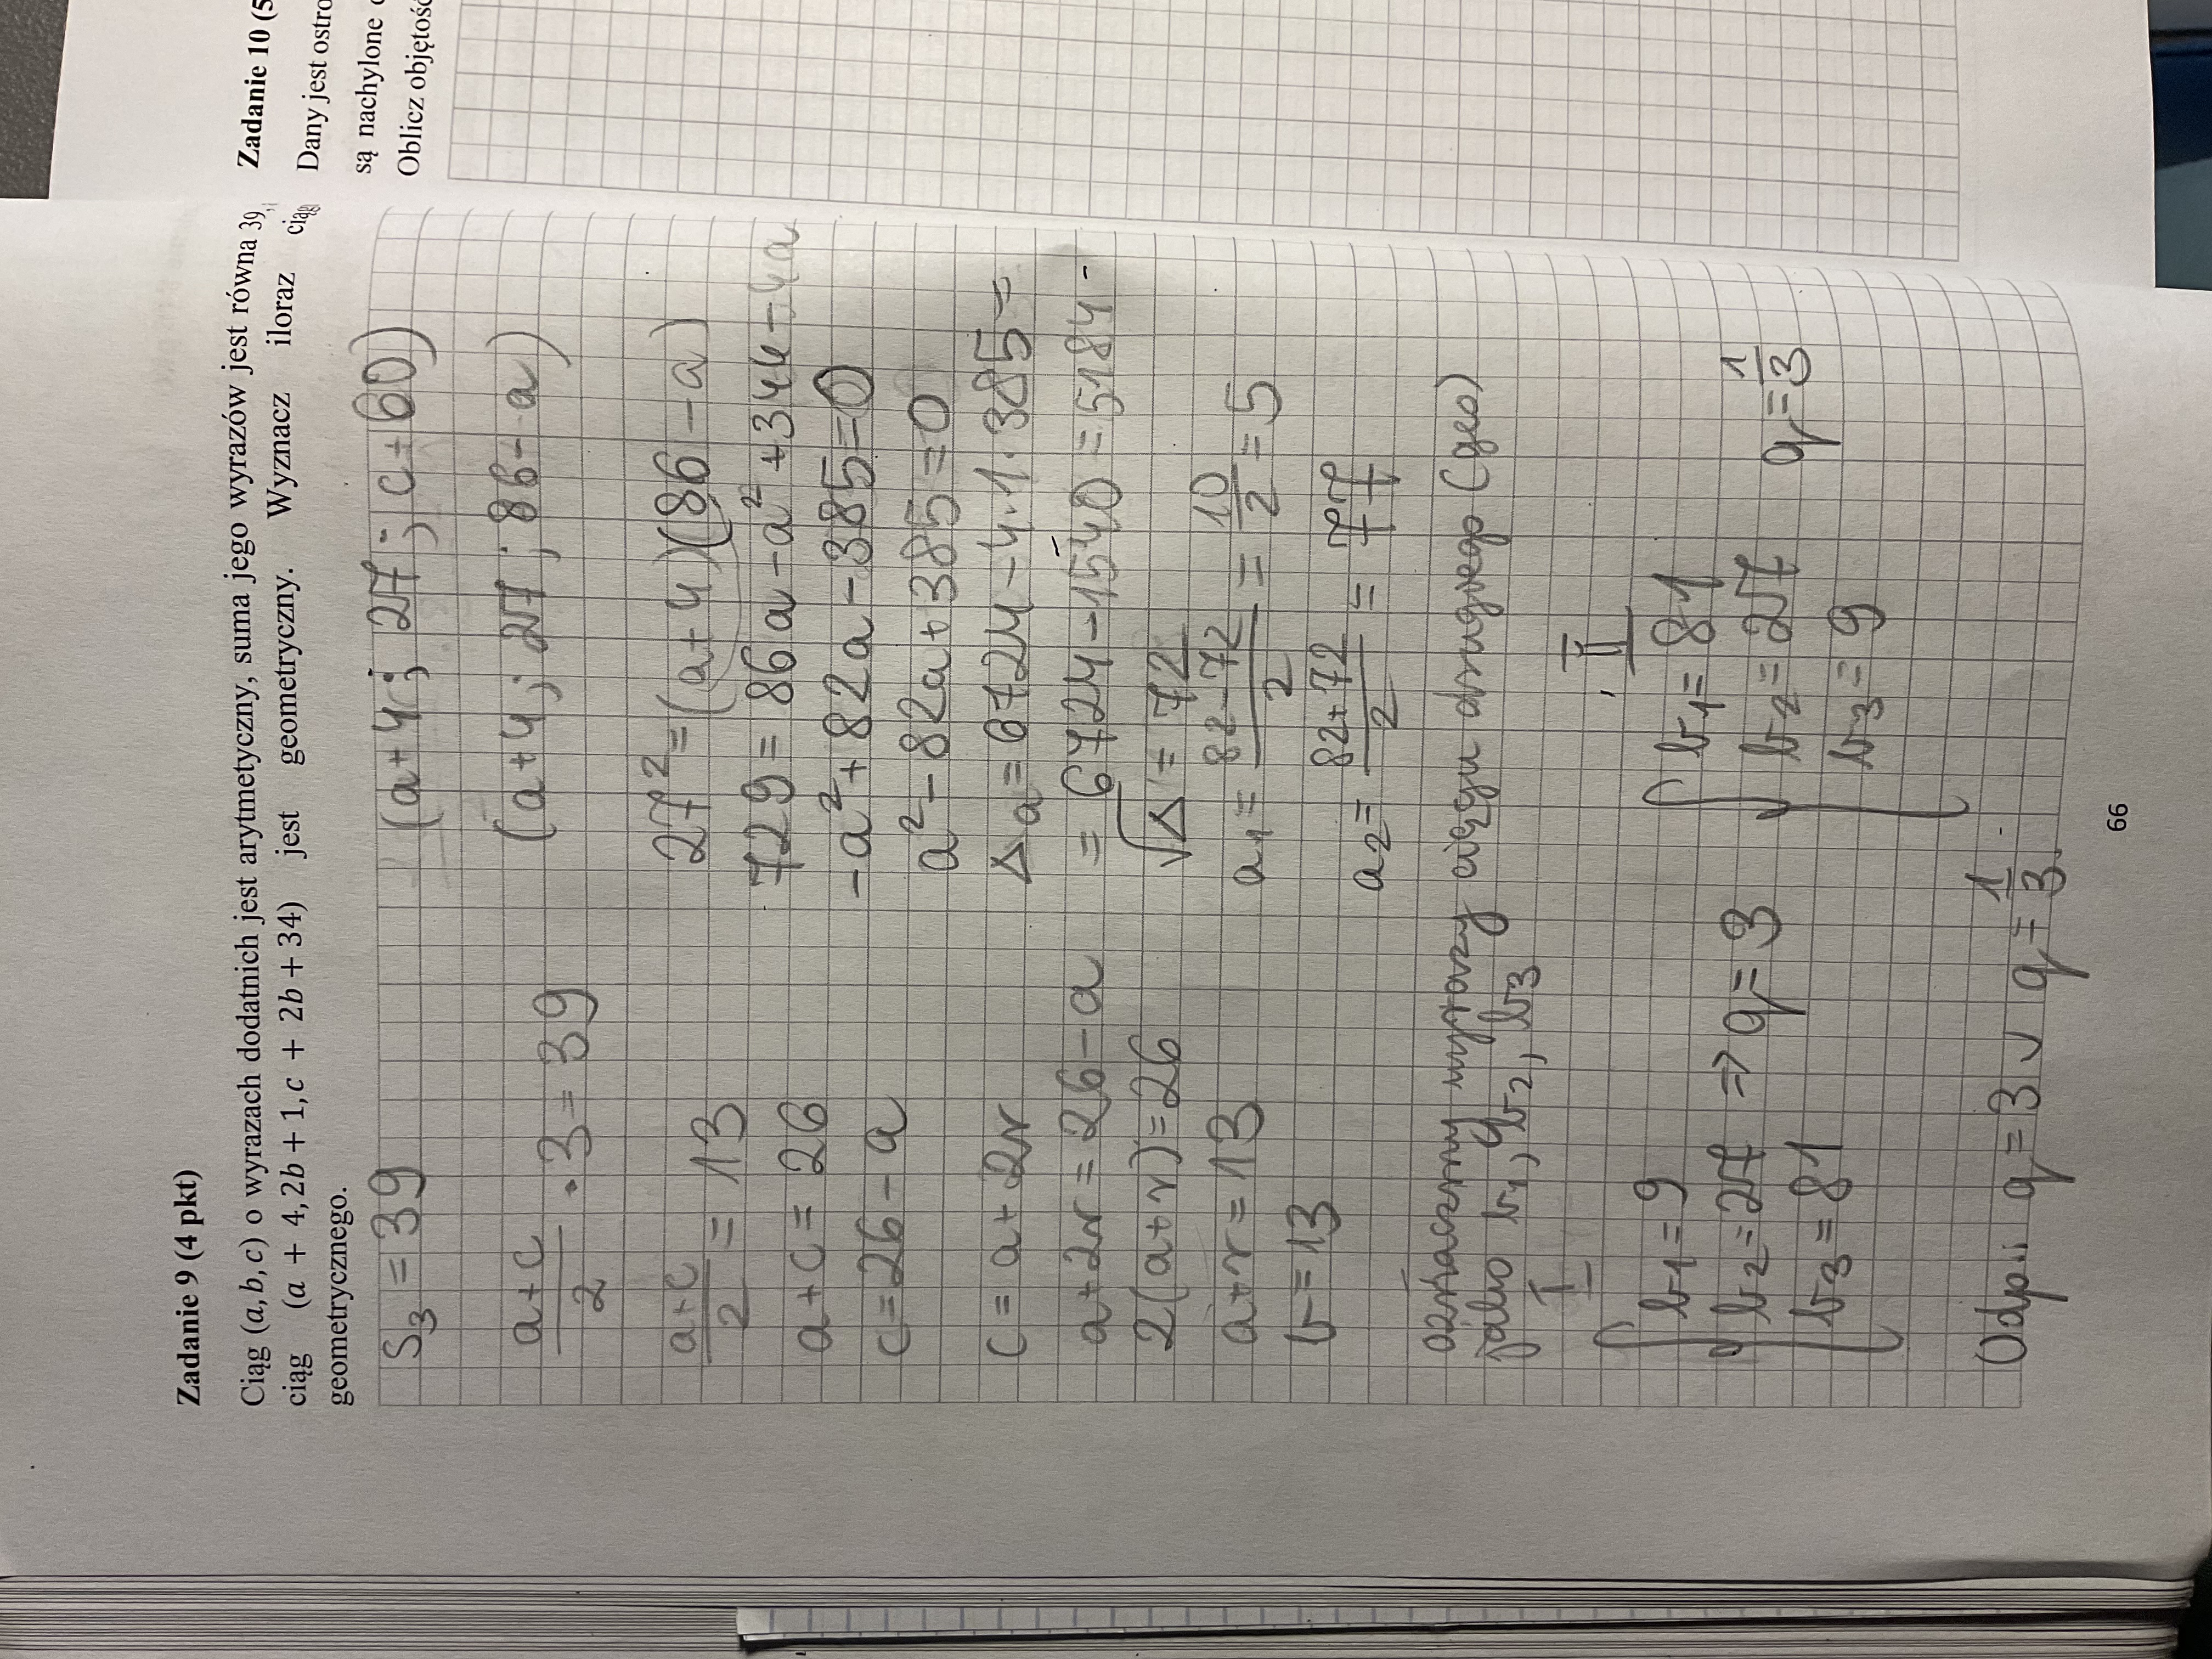 Zadanie 9 (4 pkt)
Ciąg (a, b, c) o wyrazach dodatnich jest arytmetyczny, suma jego wyrazów jest równa 39,
ciąg (a + 4, 2b + 1, c + 2b + 34) jest geometryczny. Wyznacz iloraz ciąg
geometrycznego.
S₃ = 39
a+c/2 · 3 = 39
a+c/2 = 13
a+c = 26
c = 26 - a
c = a + 2r
a + 2r = 26 - a
2(a+r) = 26
a+r = 13
b = 13
(a+4; 27; c+60)
(a+4; 27; 86-a)
27² = (a+4)(86-a)
729 = 86a - a² + 344 - 4a
-a² + 82a - 385 = 0
a² - 82a + 385 = 0
Δa = 6724 - 4·1·385 =
= 6724 - 1540 = 5184
√Δ = 72
a₁ = 82-72/2 = 10/2 = 5
a₂ = 82+72/2 = 77
oznaczmy wyrazy ciągu drugiego (geo)
jako b₁, b₂, b₃
I
{ b₁ = 9
b₂ = 27 ⇒ q = 3
b₃ = 81
II
{ b₁ = 81
b₂ = 27 q = 1/3
b₃ = 9
Odp.: q = 3 ∨ q = 1/3.
66
Zadanie 10 (5
Dany jest ostro
są nachylone
Oblicz objętość